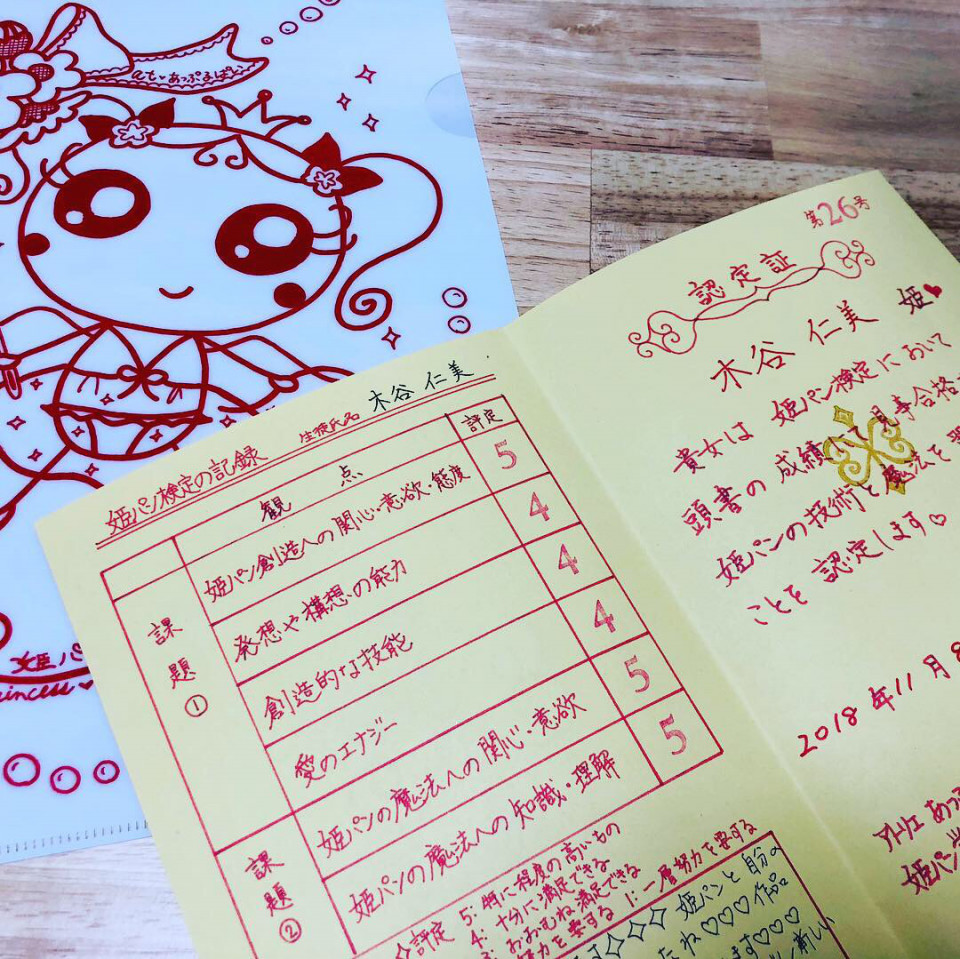 at♥あっぷるぱい
姫パ
rincess♥
姫パン検定の記録
生徒氏名 木谷 仁美
観点
評定
課題①
姫パン創造への関心・意欲・態度 5
発想や構想の能力 4
創造的な技能 4
愛のエナジー 4
課題②
姫パンの魔法への関心・意欲 5
姫パンの魔法への知識・理解 5
☆評定 5:特に程度の高いもの
4:十分に満足できる
3:おおむね満足できる
努力を要する 1:一層努力を要する
姫パンと自分の
たね♡♡♡作品
ます♡♡
新しい
第26号
認定証
木谷 仁美 姫♥
貴女は 姫パン検定において
頭書の成績 見事合格
姫パンの技術と魔法を習
ことを 認定します♡
2018年11月8
アトリエ あっぷ
姫パン